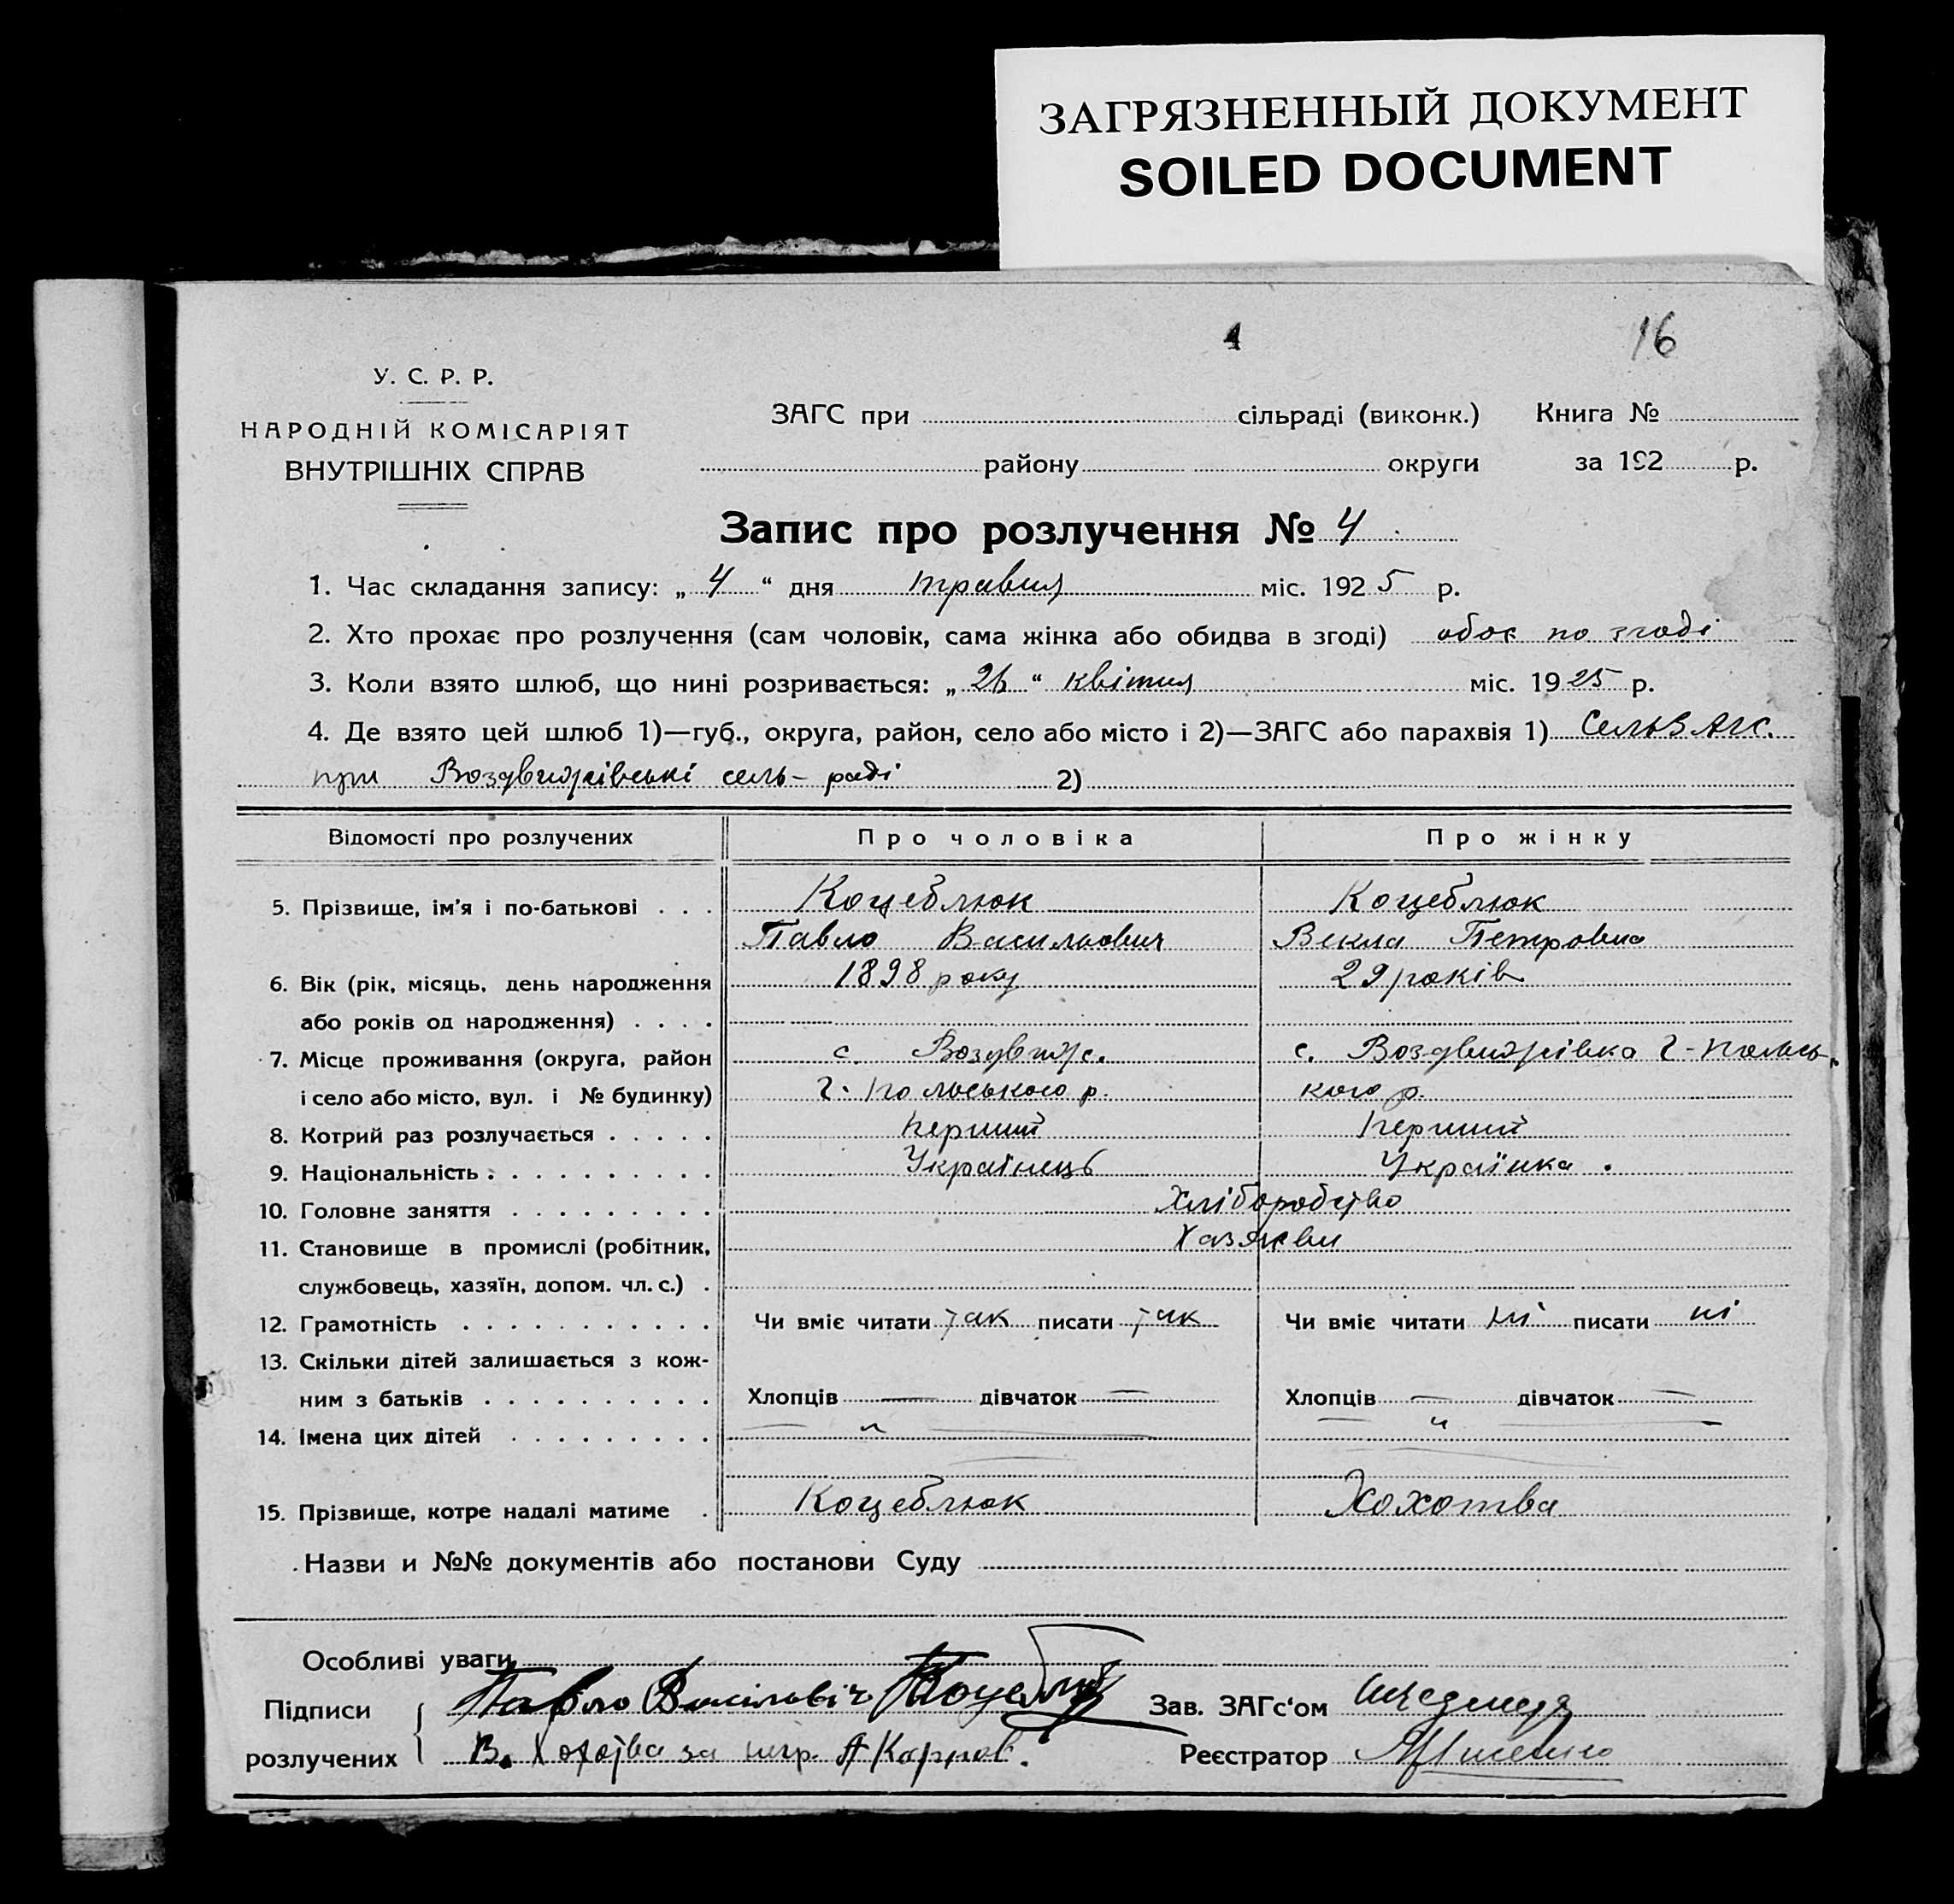 ЗАГРЯЗНЕННЫЙ ДОКУМЕНТ
SOILED DOCUMENT
4
16
У. С. Р. Р.
НАРОДНІЙ КОМІСАРІЯТ
ВНУТРІШНІХ СПРАВ
ЗАГС при сільраді (виконк.) Книга №
району округи за 192 р.
Запис про розлучення № 4
1. Час складання запису: „ 4 “ дня травня міс. 1925 р.
2. Хто прохає про розлучення (сам чоловік, сама жінка або обидва в згоді) обоє по згоді
3. Коли взято шлюб, що нині розривається: „ 26 “ квітня міс. 1925 р.
4. Де взято цей шлюб 1)—губ., округа, район, село або місто і 2)—ЗАГС або парахвія 1) СельЗАГС.
при Воздвиж­івські сель-раді 2)
Відомості про розлучених Про чоловіка Про жінку
5. Прізвище, ім’я і по-батькові . . . Коцеблюк Коцеблюк
Павло Васильович Векла Петровна
6. Вік (рік, місяць, день народження 1898 року 29 років
або років од народження) . . . .
7. Місце проживання (округа, район с. Воздвиж с. с. Воздвижівка Г-Польсь-
і село або місто, вул. і № будинку) Г. Польського р. кого р.
8. Котрий раз розлучається . . . . . перший перший
9. Національність . . . . . . . . . . Українець Українка .
10. Головне заняття . . . . . . . . . Хліборобство
11. Становище в промислі (робітник, Хазяєви
службовець, хазяїн, допом. чл. с.) .
12. Грамотність . . . . . . . . . . . Чи вміє читати так писати так Чи вміє читати ні писати ні
13. Скільки дітей залишається з кож-
ним з батьків . . . . . . . . . . Хлопців — дівчаток — Хлопців — дівчаток —
14. Імена цих дітей . . . . . . . . . — „ — — „ —
15. Прізвище, котре надалі матиме . Коцеблюк Хохотва
Назви и №№ документів або постанови Суду
Особливі уваги
Підписи Павло Васільвіч Коцеблюк Зав. ЗАГс‘ом
розлучених В. Хохотва за негр. А Карпов. Реєстратор